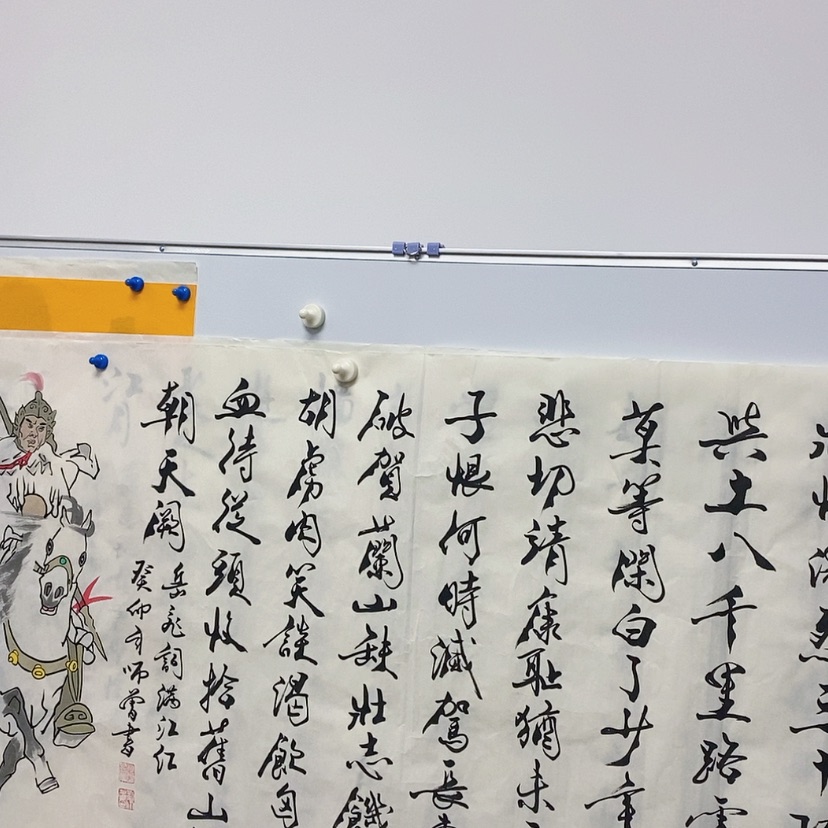 烈三十
與土八千里路雲
莫等閑白了少年
悲切靖康耻猶未
子恨何時滅駕長
破賀蘭山缺壯志饑
胡虜肉笑談渴飲匈
血待從頭收拾舊山
朝天闕
岳飛詞滿江红
癸卯 師曾書